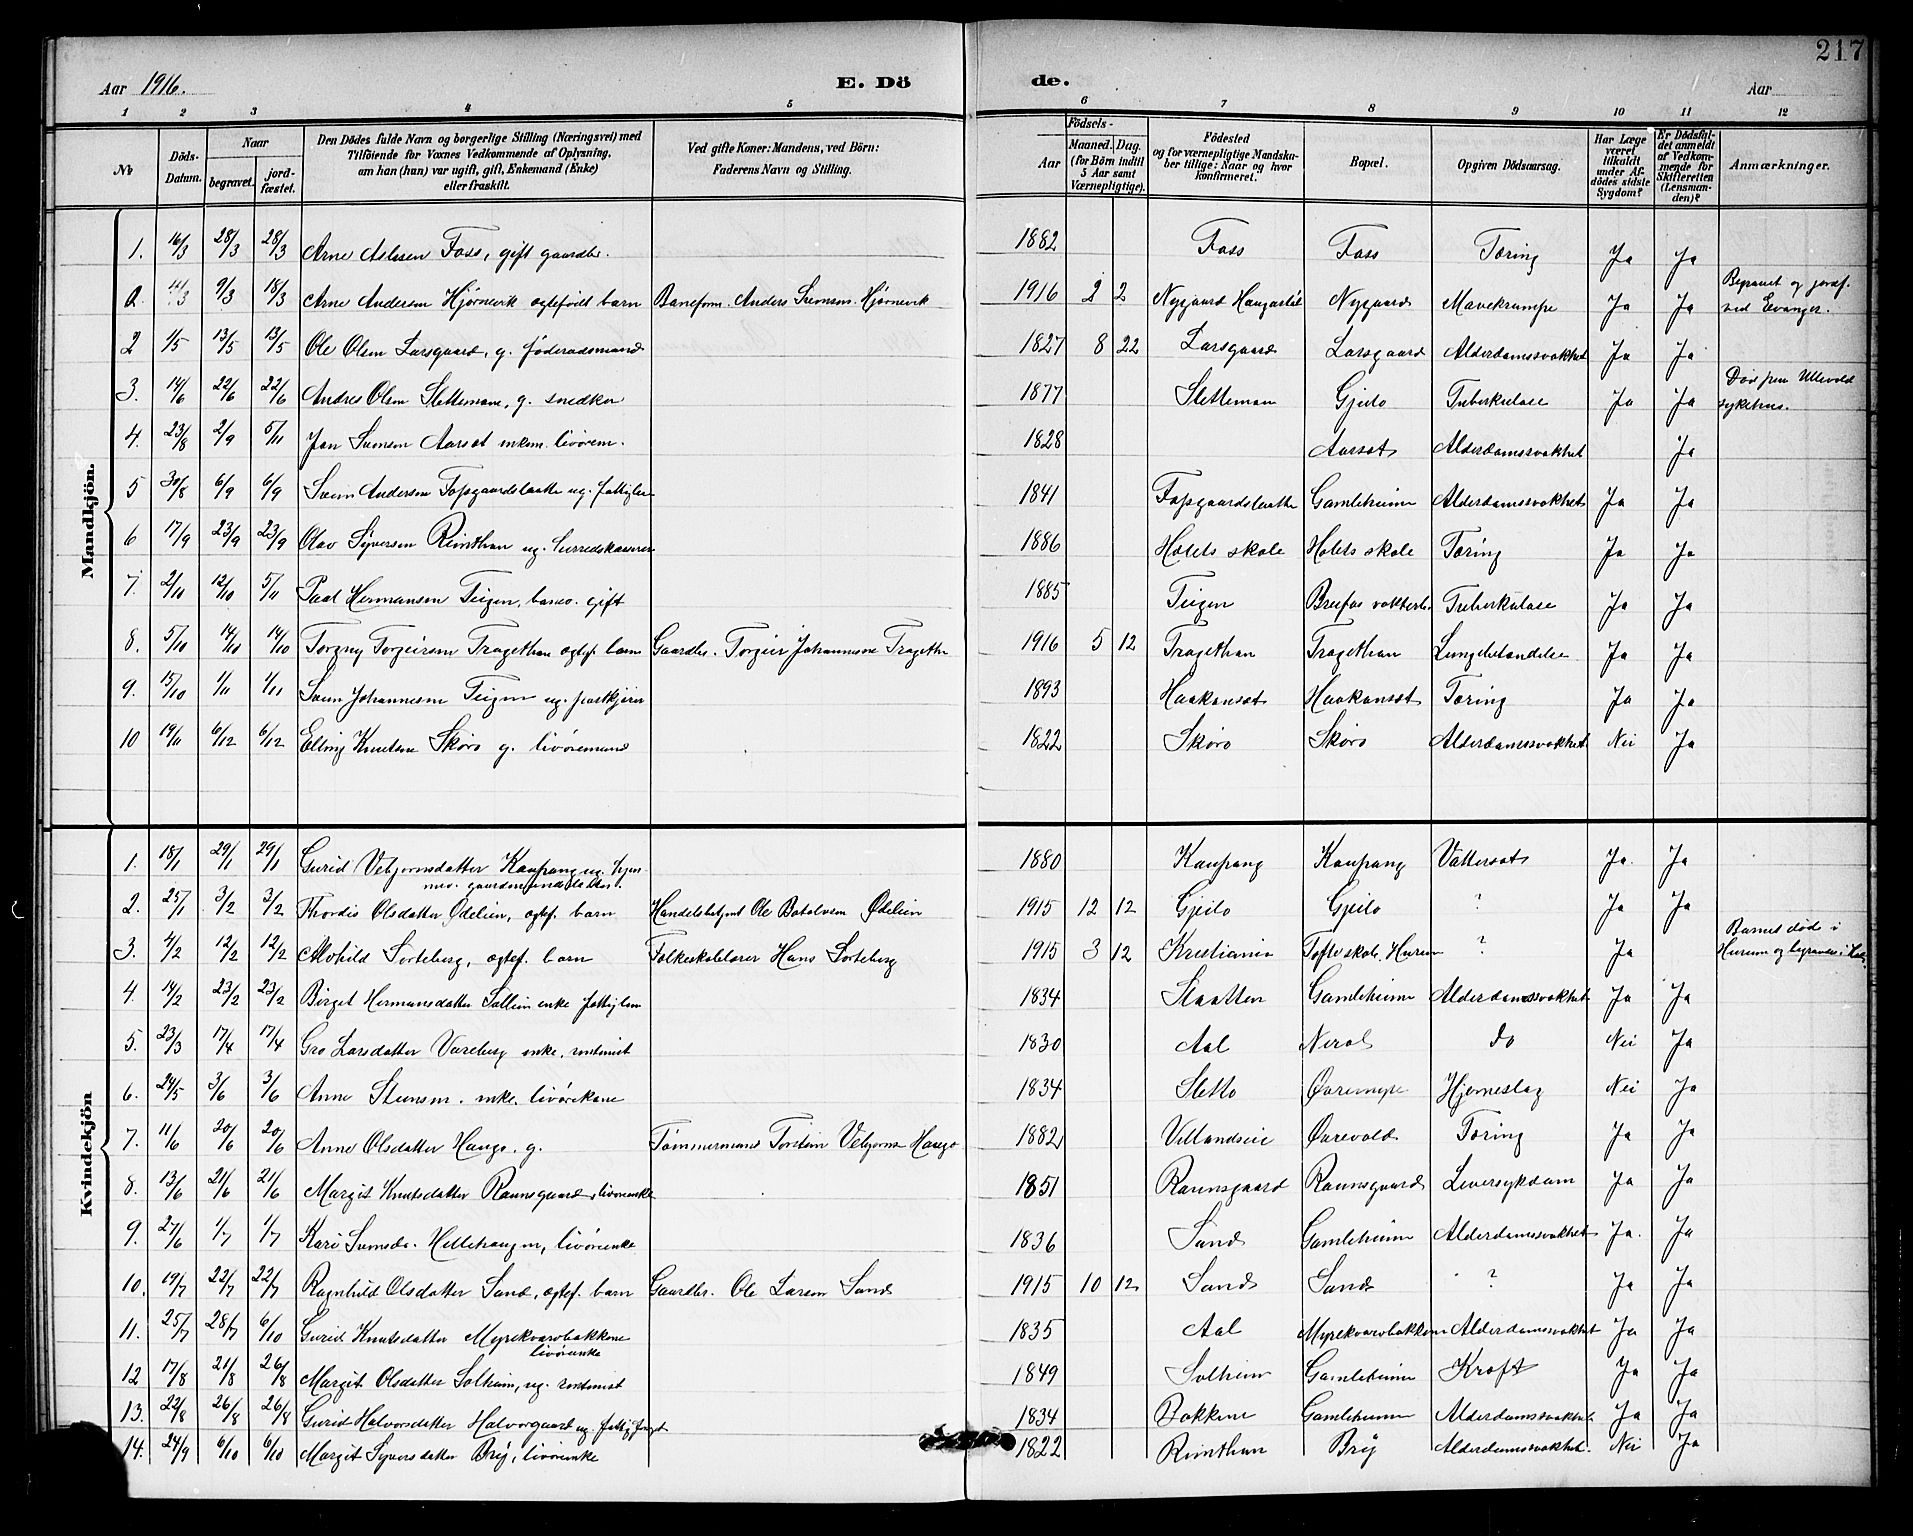 217
Aar 1916. E. Dö de. Aar
1 2 3 4 5 6 7 8 9 10 11 12
№ Döds-Datum. Naar begravet. jordfæstet. Den Dödes fulde Navn og borgerlige Stilling (Næringsvei) med Tilföiende for Voxnes Vedkommende af Oplysning, om han (hun) var ugift, gift, Enkemand (Enke) eller fraskilt. Ved gifte Koner: Mandens, ved Börn: Faderens Navn og Stilling. Födsels- Aar Maaned. Dag. (for Börn indtil 5 Aar samt Værnepligtige). Födested og for værnepligtige Mandskaber tillige: Naar og hvor konfirmeret. Bopæl. Opgiven Dödsaarsag. Har Læge været tilkaldt under Afdödes sidste Sygdom? Er Dödsfaldet anmeldt af Vedkommende for Skifteretten (Lensmanden)? Anmærkninger.
Mandkjön.
1. 16/3 28/3 28/3 Arne Aslesen Foss, gift gaardbr. 1882 Foss Foss Tæring Ja Ja
a. 4/3 9/3 18/3 Arne Andersen Hjørnevik egtefødt barn Baneform. Anders Svensen Hjørnevik 1916 2 2 Nygaard Haugastøl Nygaard Mavekrampe Ja Ja Begravet og jordf. ved Evanger.
2 1/5 13/5 13/5 Ole Olsen Larsgaard, g. føderaadsmand 1827 8 22 Larsgaard Larsgaard Alderdomssvakhet Ja Ja
3. 14/6 22/6 22/6 Andres Olsen Slettemoen, g. snedker 1877 Slettemoen Gjeilo Tuberkulose Ja Ja Død paa Ullevold sykehus.
4. 23/8 2/9 5/11 Jon Svensen Aarset enkem. livørem. 1828 Aarset Alderdomssvakhet Ja
5 30/8 6/9 6/9 Svein Andersen Fopsgaardsleatte ug. fattiglem 1841 Fopsgaardsleatte Gamleheimen Alderdomssvakhet Ja Ja
6 17/9 23/9 23/9 Olav Syversen Reinthon ug. herredskasserer 1886 Holets skole Holets skole Tæring Ja Ja
7. 2/10 12/10 5/11 Paal Hermansen Teigen, banev. gift 1885 Teigen Breifos vokterb. Tuberkulose Ja Ja
8. 5/10 14/10 14/10 Torgny Torgeirsen Tragethon egtef. barn Gaardbr. Torgeir Johannesen Tragethon 1916 5 12 Tragethon Tragethon Lungebetændelse Ja Ja
9. 15/10 1/11 1/11 Svein Johannesen Teigen ug. postkjører 1893 Haakonset Haakonset Tæring Ja Ja
10 19/11 6/12 6/12 Elling Knutsen Skøro g. livøremand 1822 Skøro Skøro Alderdomssvakhet Nei Ja
Kvindekjön
1. 18/1 29/1 29/1 Gurid Vebjørnsdatter Kaupang ug. hjemmev. gaardmandsdatter. 1880 Kaupang Kaupang Vattersot Ja. Ja
2. 25/1 3/2 3/2 Thordis Olsdatter Ødelien, egtef. barn Handelsbetjent Ole Botolvsen Ødelien 1915 12 12 Gjeilo Gjeilo ? Ja Ja
3. 4/2 12/2 12/2 Alvhild Sorteberg, egtef. barn Folkeskolelærer Hans Sorteberg 1915 3 12 Kristiania Tofte skole, Hurum ? Ja Barnet døde i Hurum og begravdes i
4. 14/2 23/2 23/2 Birgit Hermansdatter Sollien enke fattiglem 1834 Slaatten Gamleheimen Alderdomssvakhet Ja Ja
5. 23/3 17/4 17/4 Gro Larsdatter Vareberg enke, rentenist 1830 Aal Neral do Nei Ja
6. 24/5 3/6 3/6 Anne Steinsen. enke. livørekone 1834 Sletto Øvremyre Hjerneslag Nei Ja
7. 11/6 20/6 20/6 Anne Olsdatter Haugo. g. Tømmermand Torstein Vebjørns Haugo 1882 Villandseie Ørevold Tæring Ja Ja
8. 13/6 21/6 21/6 Margit Knutsdatter Raunsgaard, livørenke 1851 Raunsgaard Raunsgaard Leversykdom Ja Ja
9. 27/6 1/7 1/7 Kari Svensda. Hellehaugen, livørenke 1836 Sund Gamleheimen Alderdomssvakhet Ja. Ja
10. 19/7 22/7 22/7 Ragnhild Olsdatter Sund, egtef. barn Gaardbr. Ole Larsen Sund 1915 10 12 Sund Sund ? Ja Ja
11. 25/7 28/7 6/10 Gurid Knutsdatter Myrekvævbakkene livørenke 1835 Aal Myrekvævbakkene Alderdomssvakhet Ja Ja
12 17/8 21/8 26/8 Margit Olsdatter Solheim, ug. rentenist 1849 Solheim Gamleheimen Kræft Ja Ja
13. 22/8 26/8 26/8 Gurid Halvorsdatter Halvorgaard ug. fattigforsørget 1834 Bakkene Gamleheimen Alderdomssvakhet Ja Ja
14. 24/9 6/10 6/10 Margit Syversdatter Bry, livørenke 1822 Reinthon Bry Alderdomssvakhet. Nei Ja